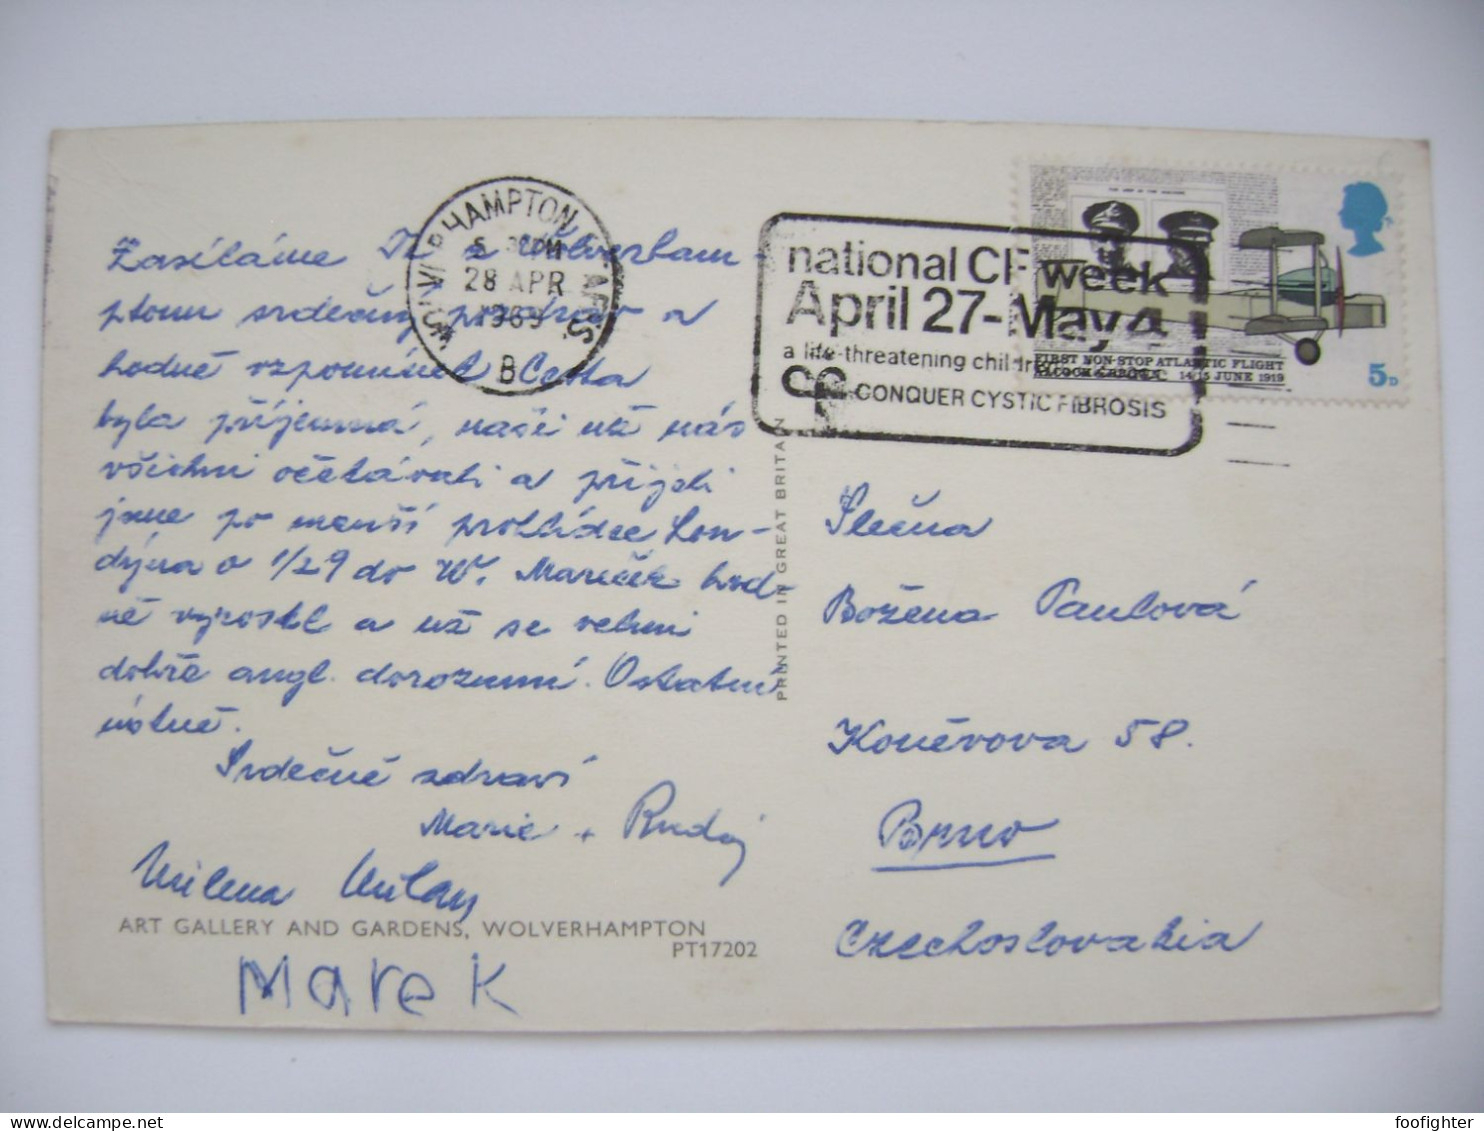 Zasíláme Ti z Wolverham-
ptonu srdečný pozdrav a
hodně vzpomínek. Cesta
byla příjemná, naši už nás
všichni očekávali a přijeli
jsme po menší prohlídce Lon-
dýna o 1/2 9 do W. Mareček hod-
ně vyrostl a už se velmi
dobře angl. dorozumí. Ostatní
ústně.
Srdečně zdraví
Marie + Rudoj
Milena Milan
ART GALLERY AND GARDENS, WOLVERHAMPTON
PT17202
Marek
PRINTED IN GREAT BRITAIN
WOLVERHAMPTON &
28 APR
1969
B
national CF week
April 27-May 4
a life-threatening children's
CF CONQUER CYSTIC FIBROSIS
FIRST NON-STOP ATLANTIC FLIGHT
ALCOCK & BROWN 14/15 JUNE 1919
5D
Slečna
Božena Pavlová
Koněvova 58.
Brno
Czechoslovakia
foofighter